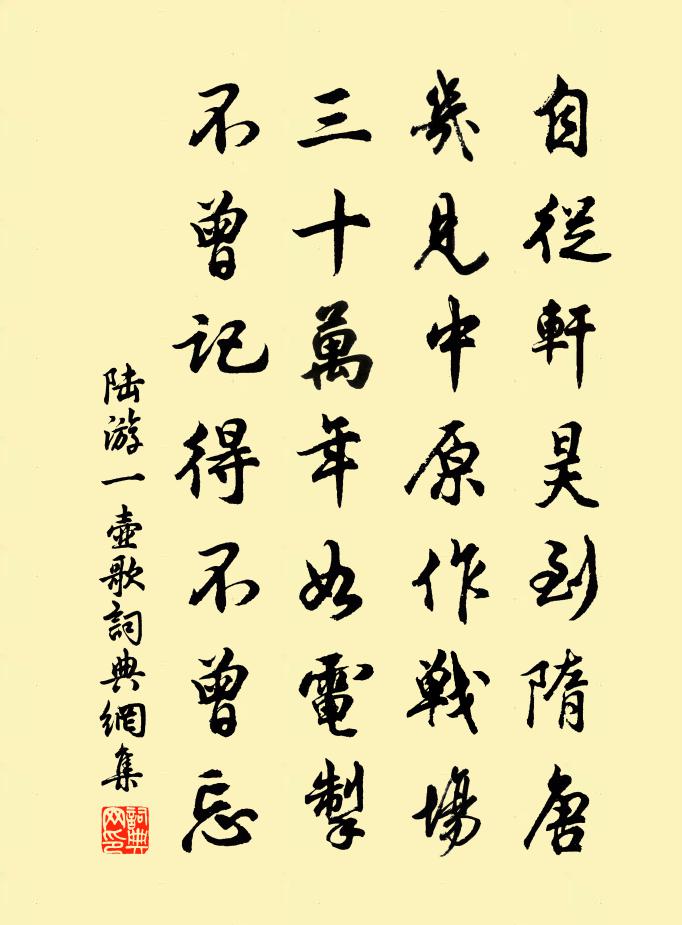 自從軒昊到隋唐
幾見中原作戰場
三十萬年如電掣
不曾記得不曾忘
陆游一壺歌詞典網集
詞典
网印